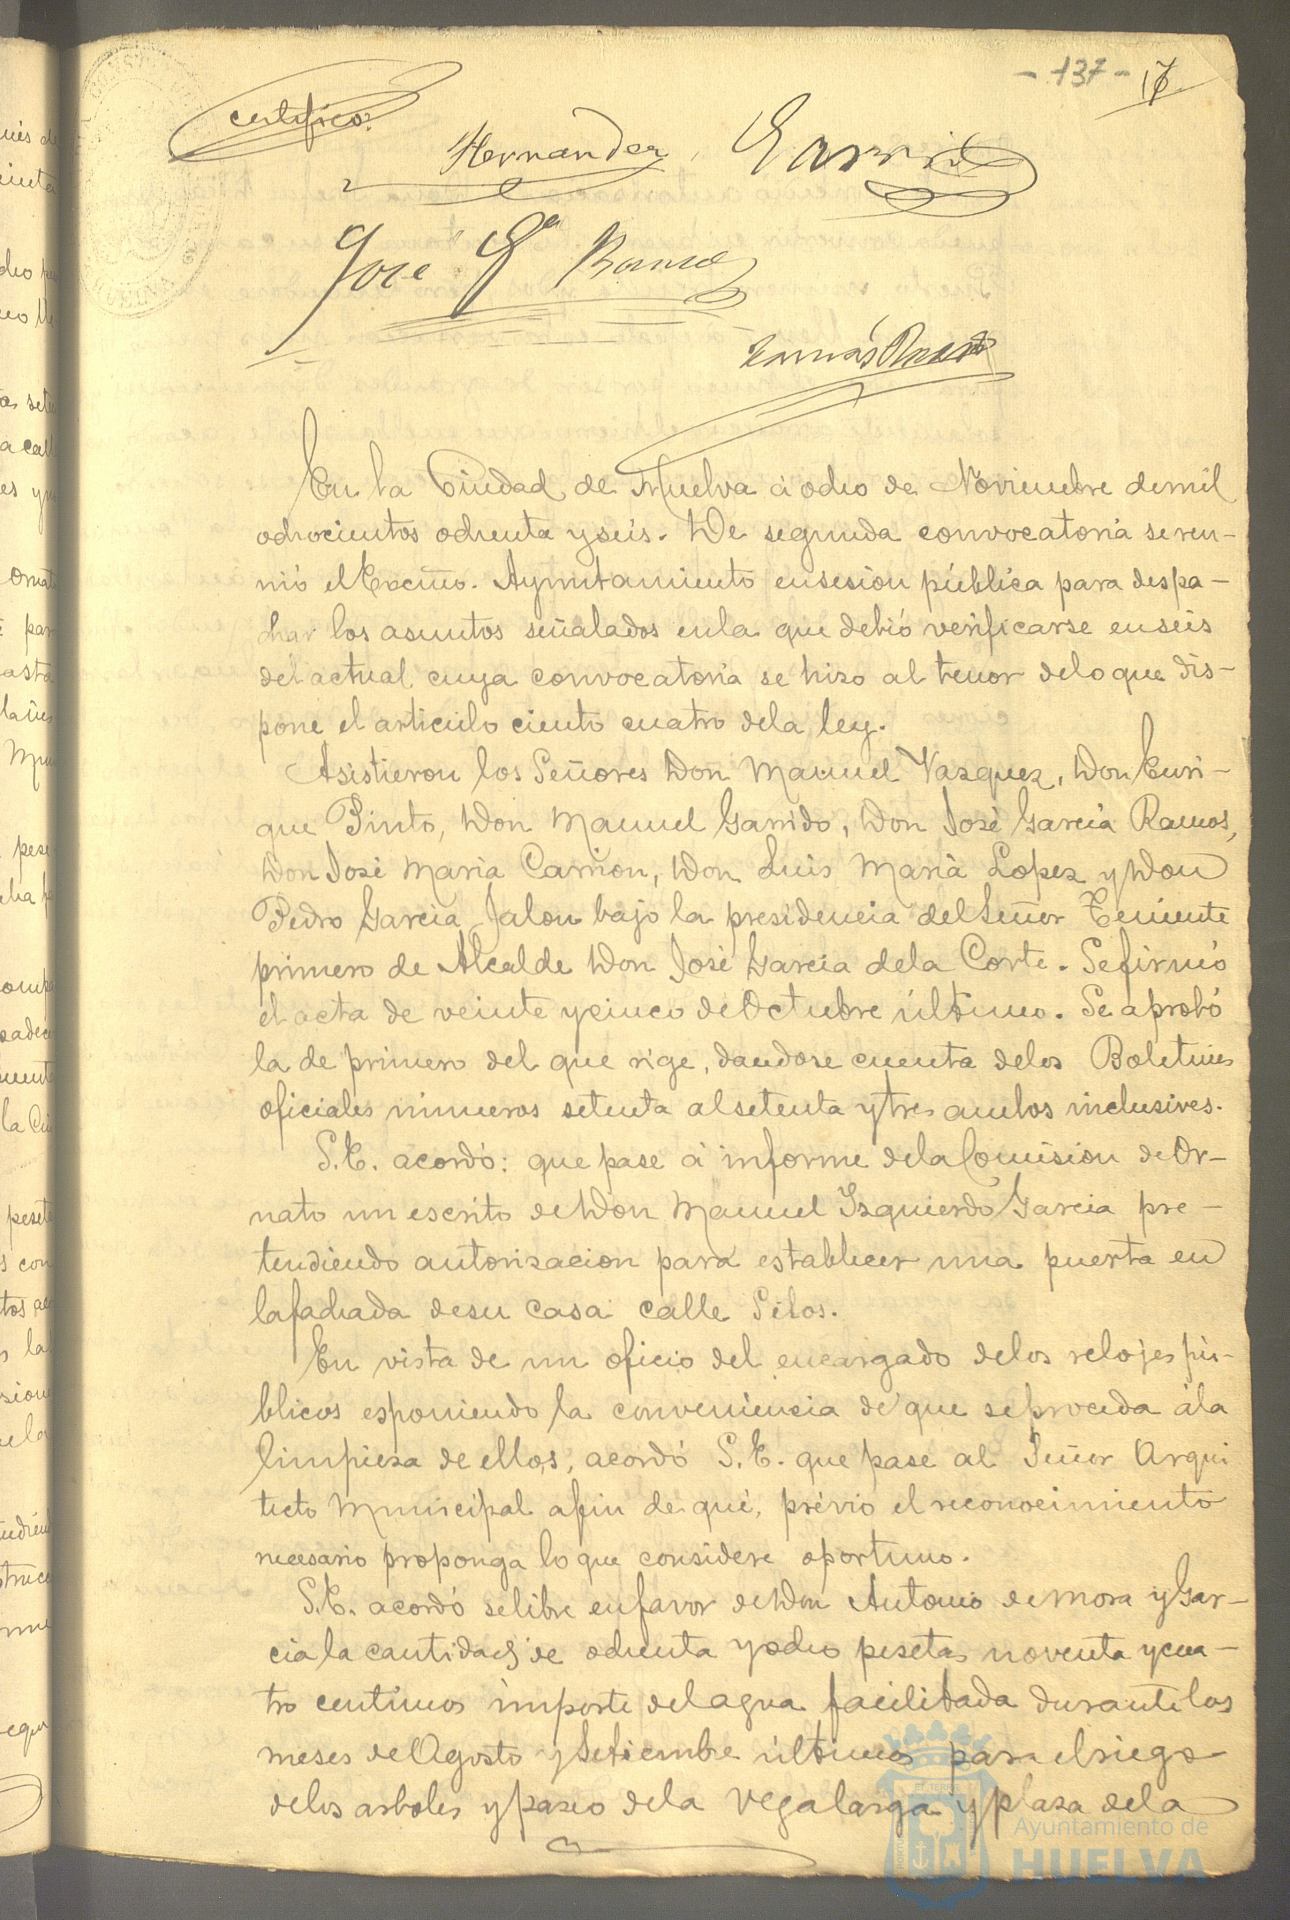 - 137 - 17
certifico:
Hernandez, Garrido
José Gª Ramos
Tomás
En la Ciudad de Huelva á ocho de Noviembre de mil
ochocientos ochenta y seis. De segunda convocatoria se reu-
nió el Excmo. Ayuntamiento en sesion pública para despa-
char los asuntos señalados en la que debió verificarse en seis
del actual cuya convocatoria se hizo al tenor de lo que dis-
pone el artículo ciento cuatro de la ley.
Asistieron los Señores Don Manuel Vazquez, Don Enri-
que Pinto, Don Manuel Garrido, Don José García Ramos,
Don José María Carrion, Don Luis María Lopez y Don
Pedro Garcia Jalon bajo la presidencia del Señor Teniente
primero de Alcalde Don José Garcia de la Corte. Se firmó
el acta de veinte y cinco de Octubre último. Se aprobó
la de primero del que rige, dandose cuenta de los Boletines
oficiales números setenta al setenta y tres ambos inclusives.
S.E. acordó: que pase á informe de la Comision de Or-
nato un escrito de Don Manuel Izquierdo Garcia pre-
tendiendo autorizacion para establecer una puerta en
la fachada de su casa calle Silos.
En vista de un oficio del encargado de los relojes pú-
blicos esponiendo la conveniencia de que se proceda á la
limpieza de ellos, acordó S.E. que pase al Señor Arqui
tecto Municipal afin de que, prévio el reconocimiento
necesario proponga lo que considere oportuno.
S.E. acordó se libre en favor de Don Antonio de Mora y Gar-
cia la cantidad de ochenta y ocho pesetas noventa y cua-
tro centimos importe del agua facilitada durante los
meses de Agosto y Setiembre últimos para el riego
de los arboles y paseo de la Vega larga y plaza de la
Ayuntamiento de
HUELVA